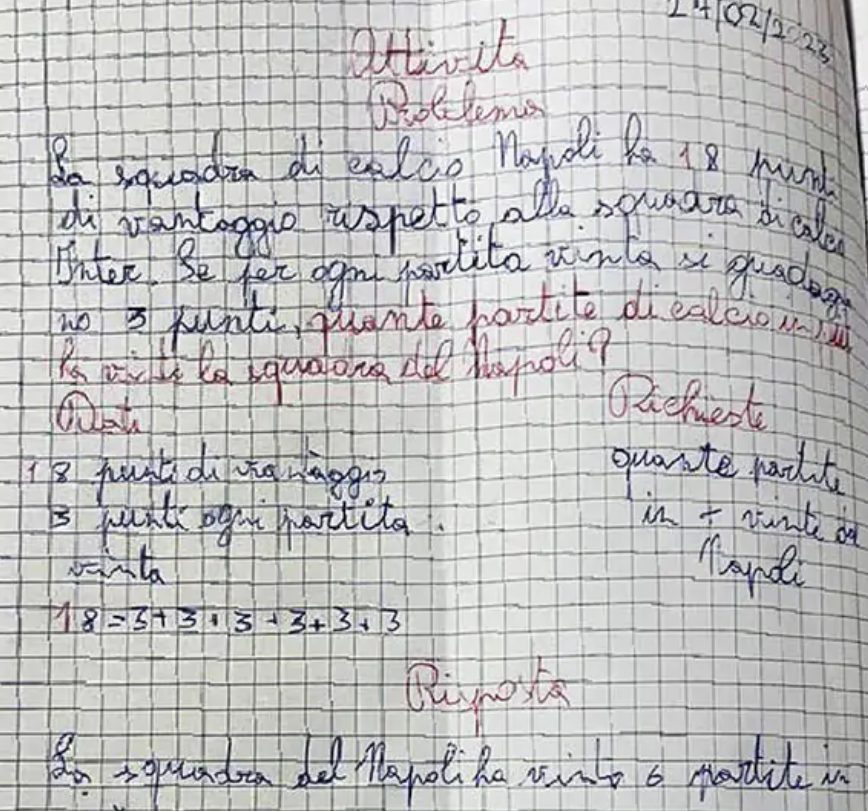 24/02/2023
Attività
Problema
La squadra di calcio Napoli ha 18 punti
di vantaggio rispetto alla squadra di calcio
Inter. Se per ogni partita vinta si guadagna
no 3 punti, quante partite di calcio in più
ha vinto la squadra del Napoli?
Dati
Richieste
18 punti di vantaggio
3 punti ogni partita
vinta
quante partite
in + vinte dal
Napoli
18=3+3+3+3+3+3
Risposta
La squadra del Napoli ha vinto 6 partite in